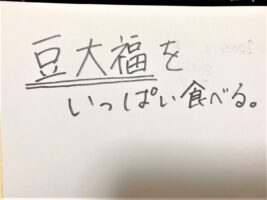 豆大福を
いっぱい食べる。